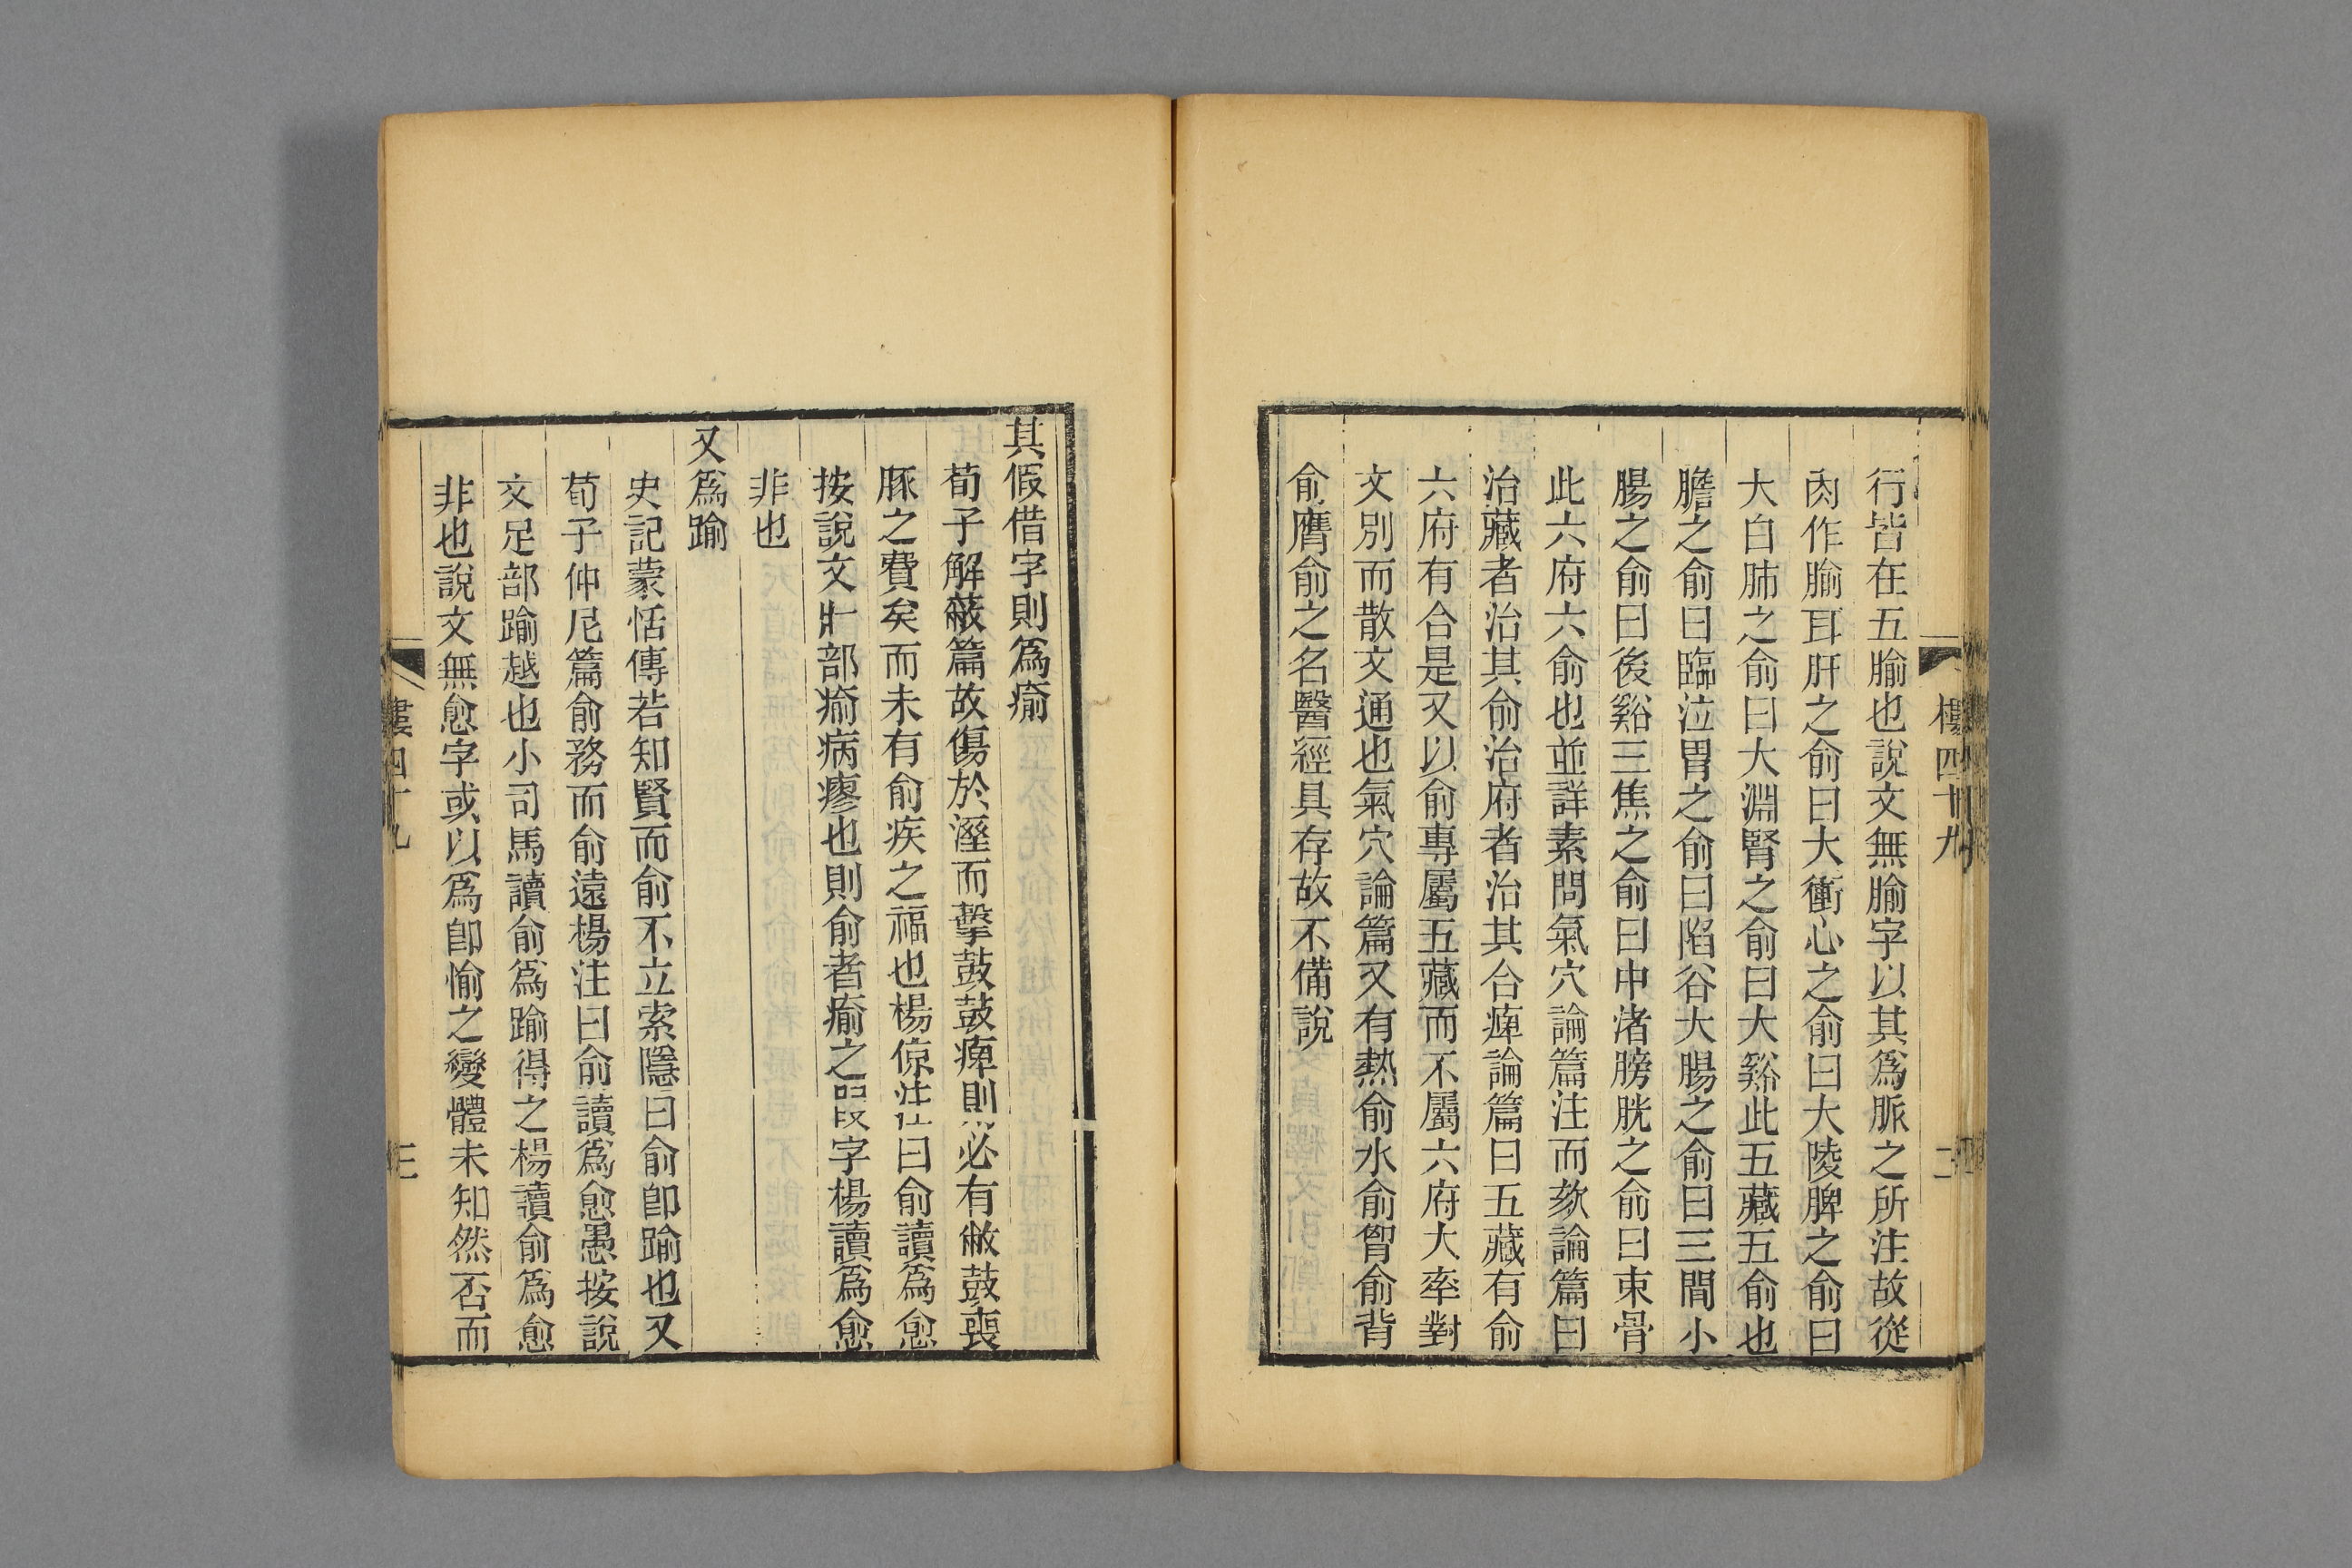 行皆在五腧也說文無腧字以其爲脈之所注故從
肉作腧耳肝之俞曰大衝心之俞曰大陵脾之俞曰
大白肺之俞曰大淵腎之俞曰大谿此五藏五俞也
膽之俞曰臨泣胃之俞曰陷谷大腸之俞曰三間小
腸之俞曰後谿三焦之俞曰中渚膀胱之俞曰束骨
此六府六俞也並詳素問氣穴論篇注而欬論篇曰
治藏者治其俞治府者治其合痺論篇曰五藏有俞
六府有合是又以俞專屬五藏而不屬六府大率對
文別而散文通也氣穴論篇又有熱俞水俞胷俞背
俞膺俞之名醫經具存故不備說
樓四十九
二
其假借字則爲瘉
荀子解蔽篇故傷於溼而擊鼓鼓痺則必有敝鼓喪
豚之費矣而未有俞疾之福也楊倞注曰俞讀爲愈
按說文疒部瘉病瘳也則俞者瘉之叚字楊讀爲愈
非也
又爲踰
史記蒙恬傳若知賢而俞不立索隱曰俞卽踰也又
荀子仲尼篇俞務而俞遠楊注曰俞讀爲愈愚按說
文足部踰越也小司馬讀俞爲踰得之楊讀俞爲愈
非也說文無愈字或以爲卽愉之變體未知然否而
樓四十九
三